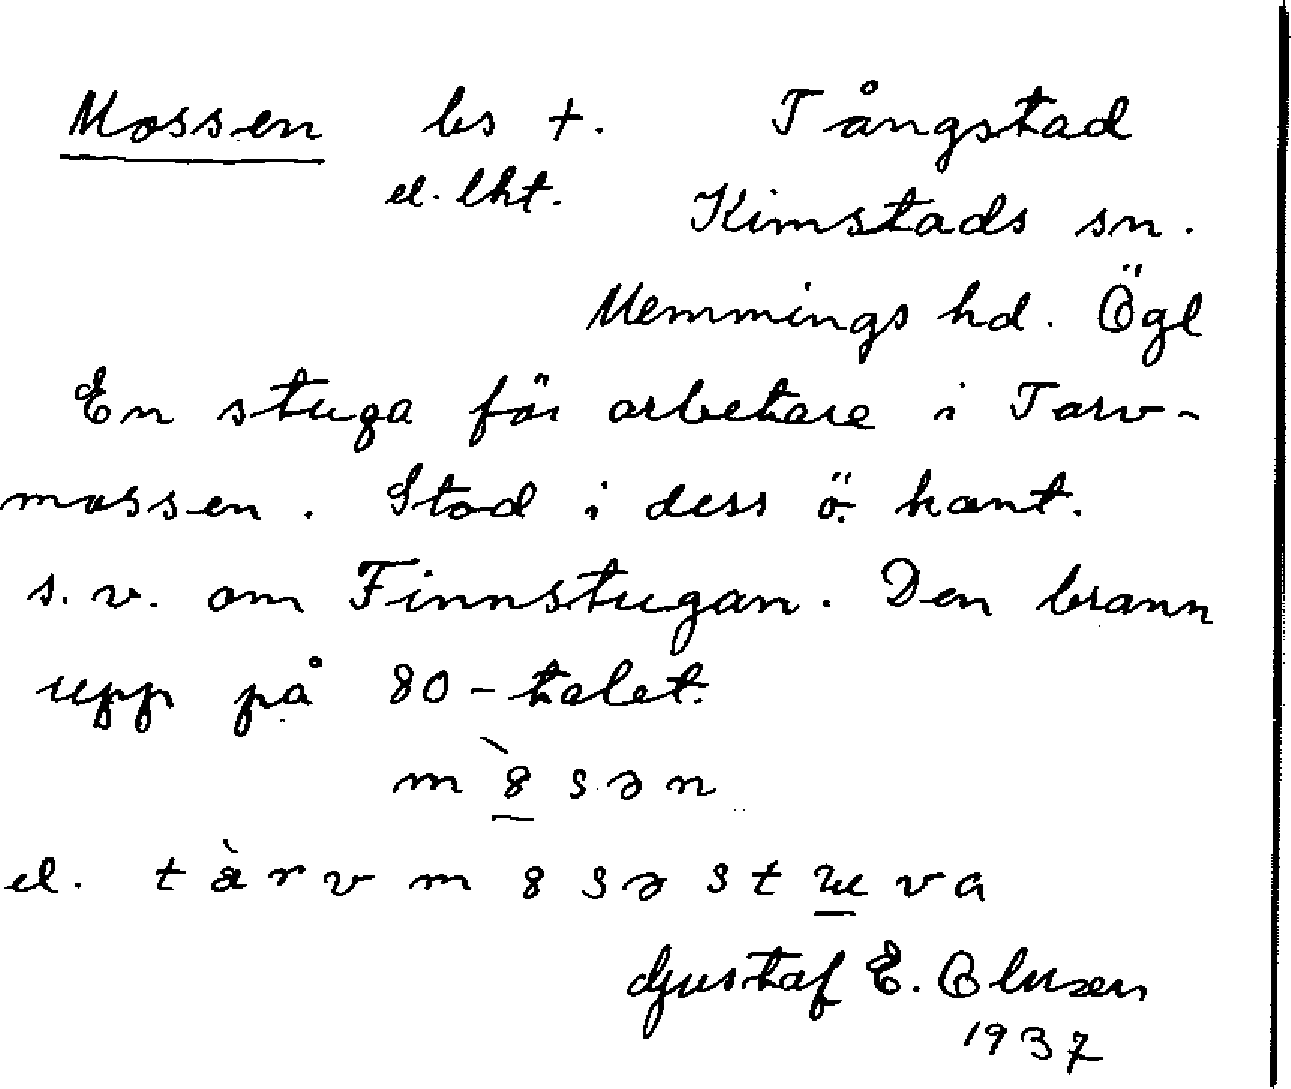 Mossen bs +. Tångstad
el. lht. Kimstads sn.
Memmings hd. Ögl
En stuga för arbetare i Torv-
mossen. Stod i dess ö. kant.
s.v. om Finnstugan. Den brann
upp på 80-talet.
m 8̀ s ə n
el. t à r v m 8 s ə s t u v a
Gustaf E. Olsson
1937